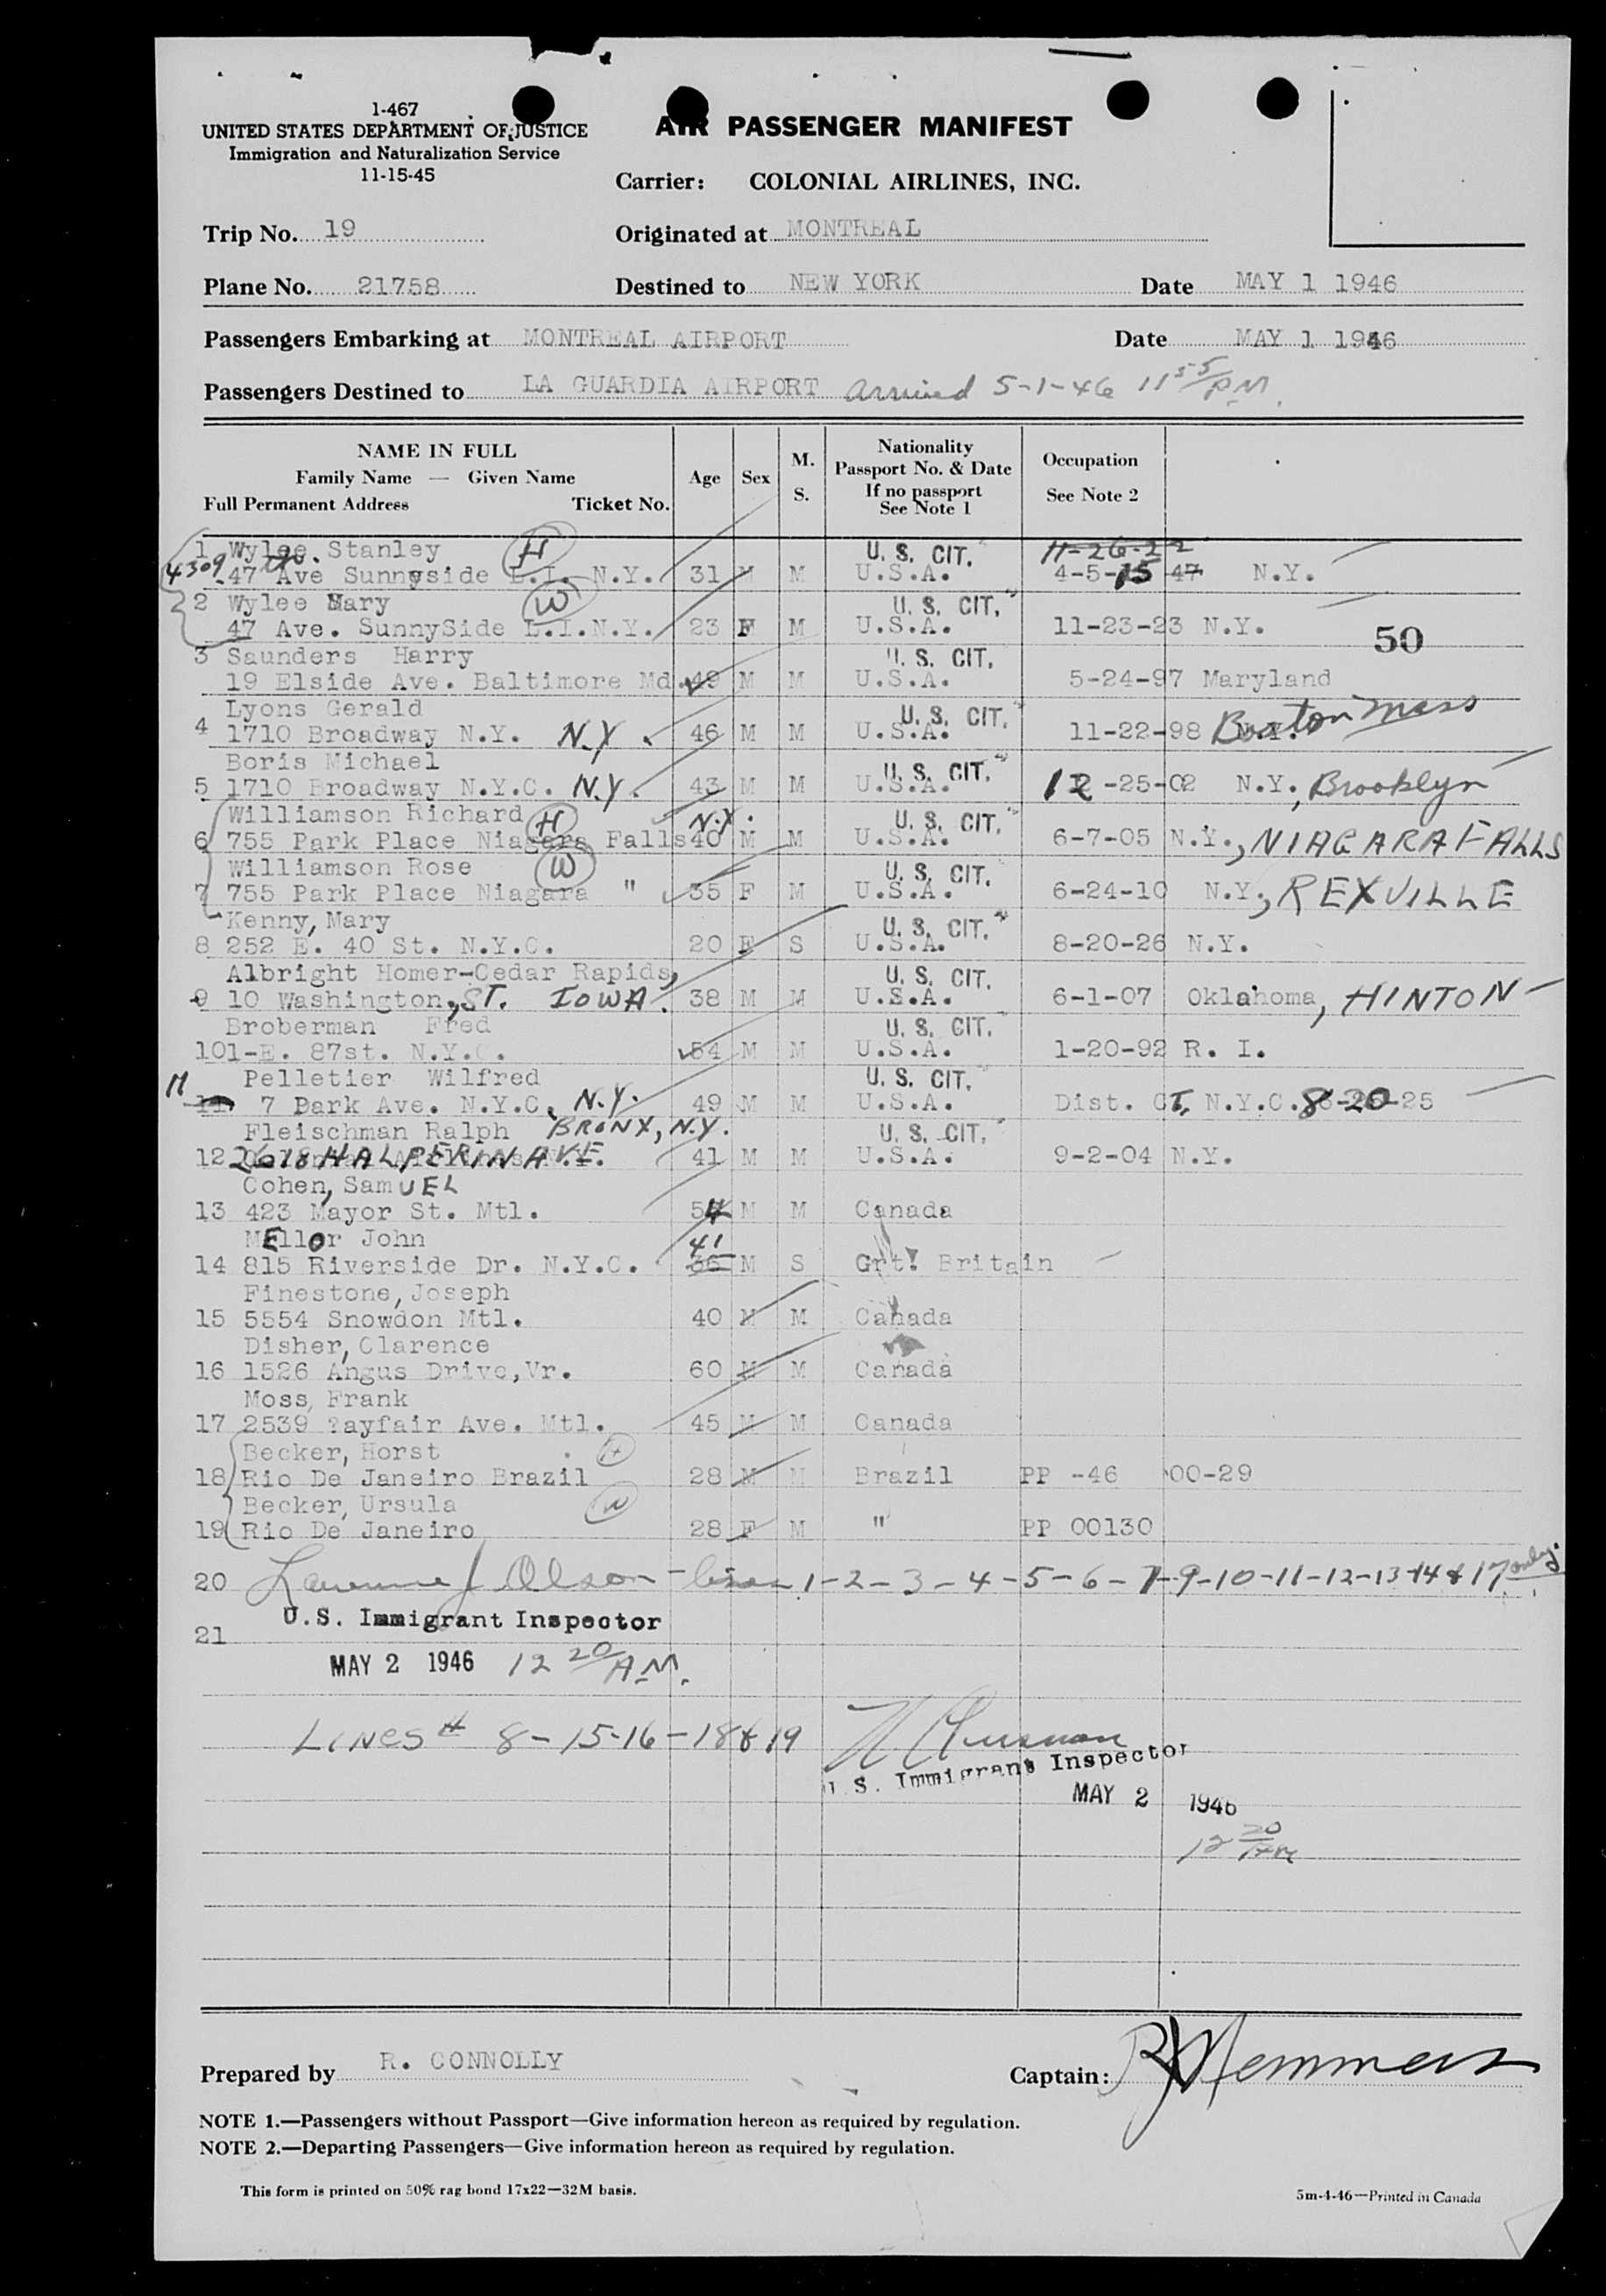 1-467
UNITED STATES DEPARTMENT OF JUSTICE
Immigration and Naturalization Service
11-15-45
AIR PASSENGER MANIFEST
Carrier: COLONIAL AIRLINES, INC.
Trip No. 19 Originated at MONTREAL
Plane No. 21758 Destined to NEW YORK Date MAY 1 1946
Passengers Embarking at MONTREAL AIRPORT Date MAY 1 1946
Passengers Destined to LA GUARDIA AIRPORT arrived 5-1-46 11 55/PM.
NAME IN FULL
Family Name — Given Name
Full Permanent Address Ticket No.
Age Sex M. S.
Nationality
Passport No. & Date
If no passport
See Note 1
Occupation
See Note 2
1 Wylee. Stanley H U. S. CIT. 11-26-22
4309 47 Ave Sunnyside L.I. N.Y. 31 M M U.S.A. 4-5-15 47 N.Y.
2 Wylee Mary W U. S. CIT.
47 Ave. SunnySide L.I.N.Y. 23 F M U.S.A. 11-23-23 N.Y.
50
3 Saunders Harry U. S. CIT.
19 Elside Ave. Baltimore Md. 49 M M U.S.A. 5-24-97 Maryland
Lyons Gerald U. S. CIT.
4 1710 Broadway N.Y. N.Y. 46 M M U.S.A. 11-22-98 Boston Mass
Boris Michael U. S. CIT.
5 1710 Broadway N.Y.C. N.Y. 43 M M U.S.A. 12-25-02 N.Y., Brooklyn
Williamson Richard H N.Y. U. S. CIT.
6 755 Park Place Niagara Falls 40 M M U.S.A. 6-7-05 N.Y., NIAGARA FALLS
Williamson Rose W U. S. CIT.
7 755 Park Place Niagara " 35 F M U.S.A. 6-24-10 N.Y., REXVILLE
Kenny, Mary U. S. CIT.
8 252 E. 40 St. N.Y.C. 20 F S U.S.A. 8-20-26 N.Y.
Albright Homer-Cedar Rapids, U. S. CIT.
9 10 Washington, ST. IOWA. 38 M M U.S.A. 6-1-07 Oklahoma, HINTON
Broberman Fred U. S. CIT.
10 1-E. 87st. N.Y.C. 54 M M U.S.A. 1-20-92 R. I.
Pelletier Wilfred U. S. CIT.
11 7 Park Ave. N.Y.C. N.Y. 49 M M U.S.A. Dist. CT, N.Y.C. 8-20-25
Fleischman Ralph BRONX, N.Y. U. S. CIT.
12 2618 HALPERIN AVE. 41 M M U.S.A. 9-2-04 N.Y.
Cohen, SamUEL
13 423 Mayor St. Mtl. 54 M M Canada
MEllor John 41
14 815 Riverside Dr. N.Y.C. 36 M S Grt. Britain
Finestone, Joseph
15 5554 Snowdon Mtl. 40 M M Canada
Disher, Clarence
16 1526 Angus Drive, Vr. 60 M M Canada
Moss, Frank
17 2539 ?ayfair Ave. Mtl. 45 M M Canada
Becker, Horst H
18 Rio De Janeiro Brazil 28 M M Brazil PP -46 00-29
Becker, Ursula W
19 Rio De Janeiro 28 F M " PP 00130
20 Lawrence J Olson - lines 1-2-3-4-5-6-7-9-10-11-12-13-14 & 17 only.
U.S. Immigrant Inspector
21
MAY 2 1946 12 20/AM.
LINES # 8-15-16-18 & 19
U.S. Immigrant Inspector
MAY 2 1946
12 20/AM
Prepared by R. CONNOLLY Captain:
NOTE 1.—Passengers without Passport—Give information hereon as required by regulation.
NOTE 2.—Departing Passengers—Give information hereon as required by regulation.
This form is printed on 50% rag bond 17x22—32M basis.
5m-4-46—Printed in Canada